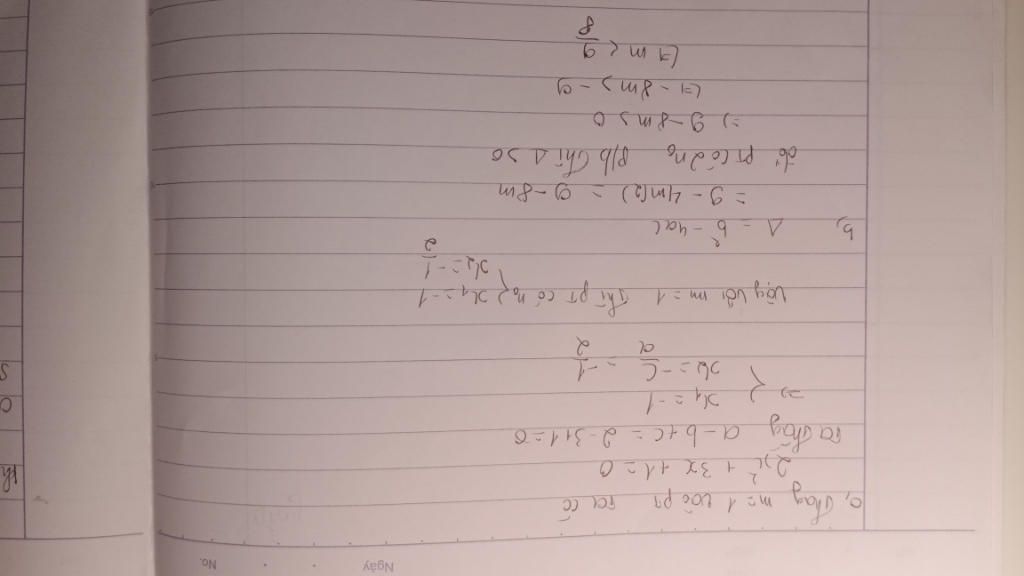 Ngày
No.
a, Thay m = 1 vào pt ta có
2x² + 3x + 1 = 0
ta thấy a - b + c = 2 - 3 + 1 = 0
=> { x₁ = -1
x₂ = -c/a = -1/2
Vậy với m = 1 thì pt có n₀ { x₁ = -1
x₂ = -1/2
b, Δ = b² - 4ac
= 9 - 4m(2) = 9 - 8m
để pt có 2 n₀ p/b thì Δ > 0
=> 9 - 8m > 0
(=) - 8m > - 9
(=) m < 9/8